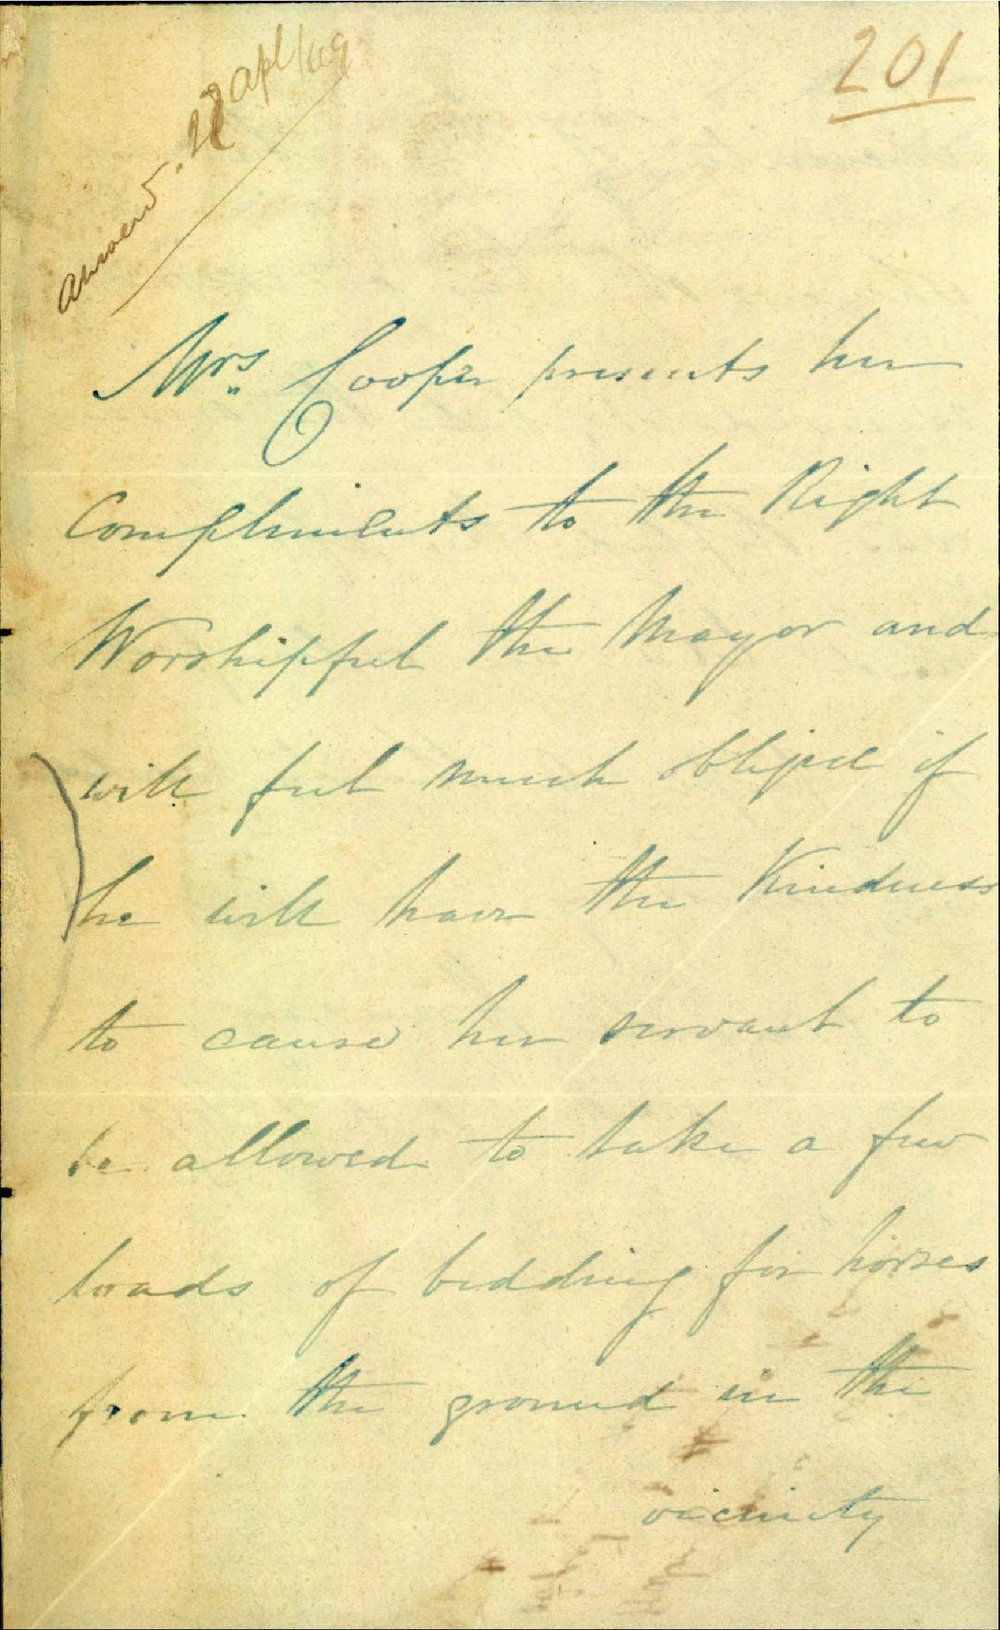 201
Answerd. 28 Apl/49
Mrs. Cooper presents her
Compliments to the Right
Worshipful the Mayor and
will feel much obliged if
he will have the Kindness
to cause her servant to
be allowed to take a few
loads of bedding for horses
from the ground in the
vicinity